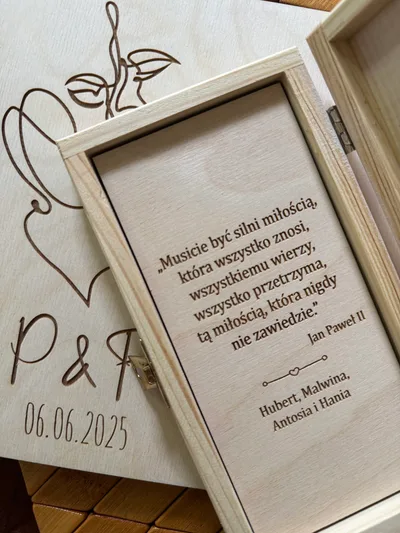 „Musicie być silni miłością,
która wszystko znosi,
wszystkiemu wierzy,
wszystko przetrzyma,
tą miłością, która nigdy
nie zawiedzie.”
Jan Paweł II
Hubert, Malwina,
Antosia i Hania
P &
06.06.2025